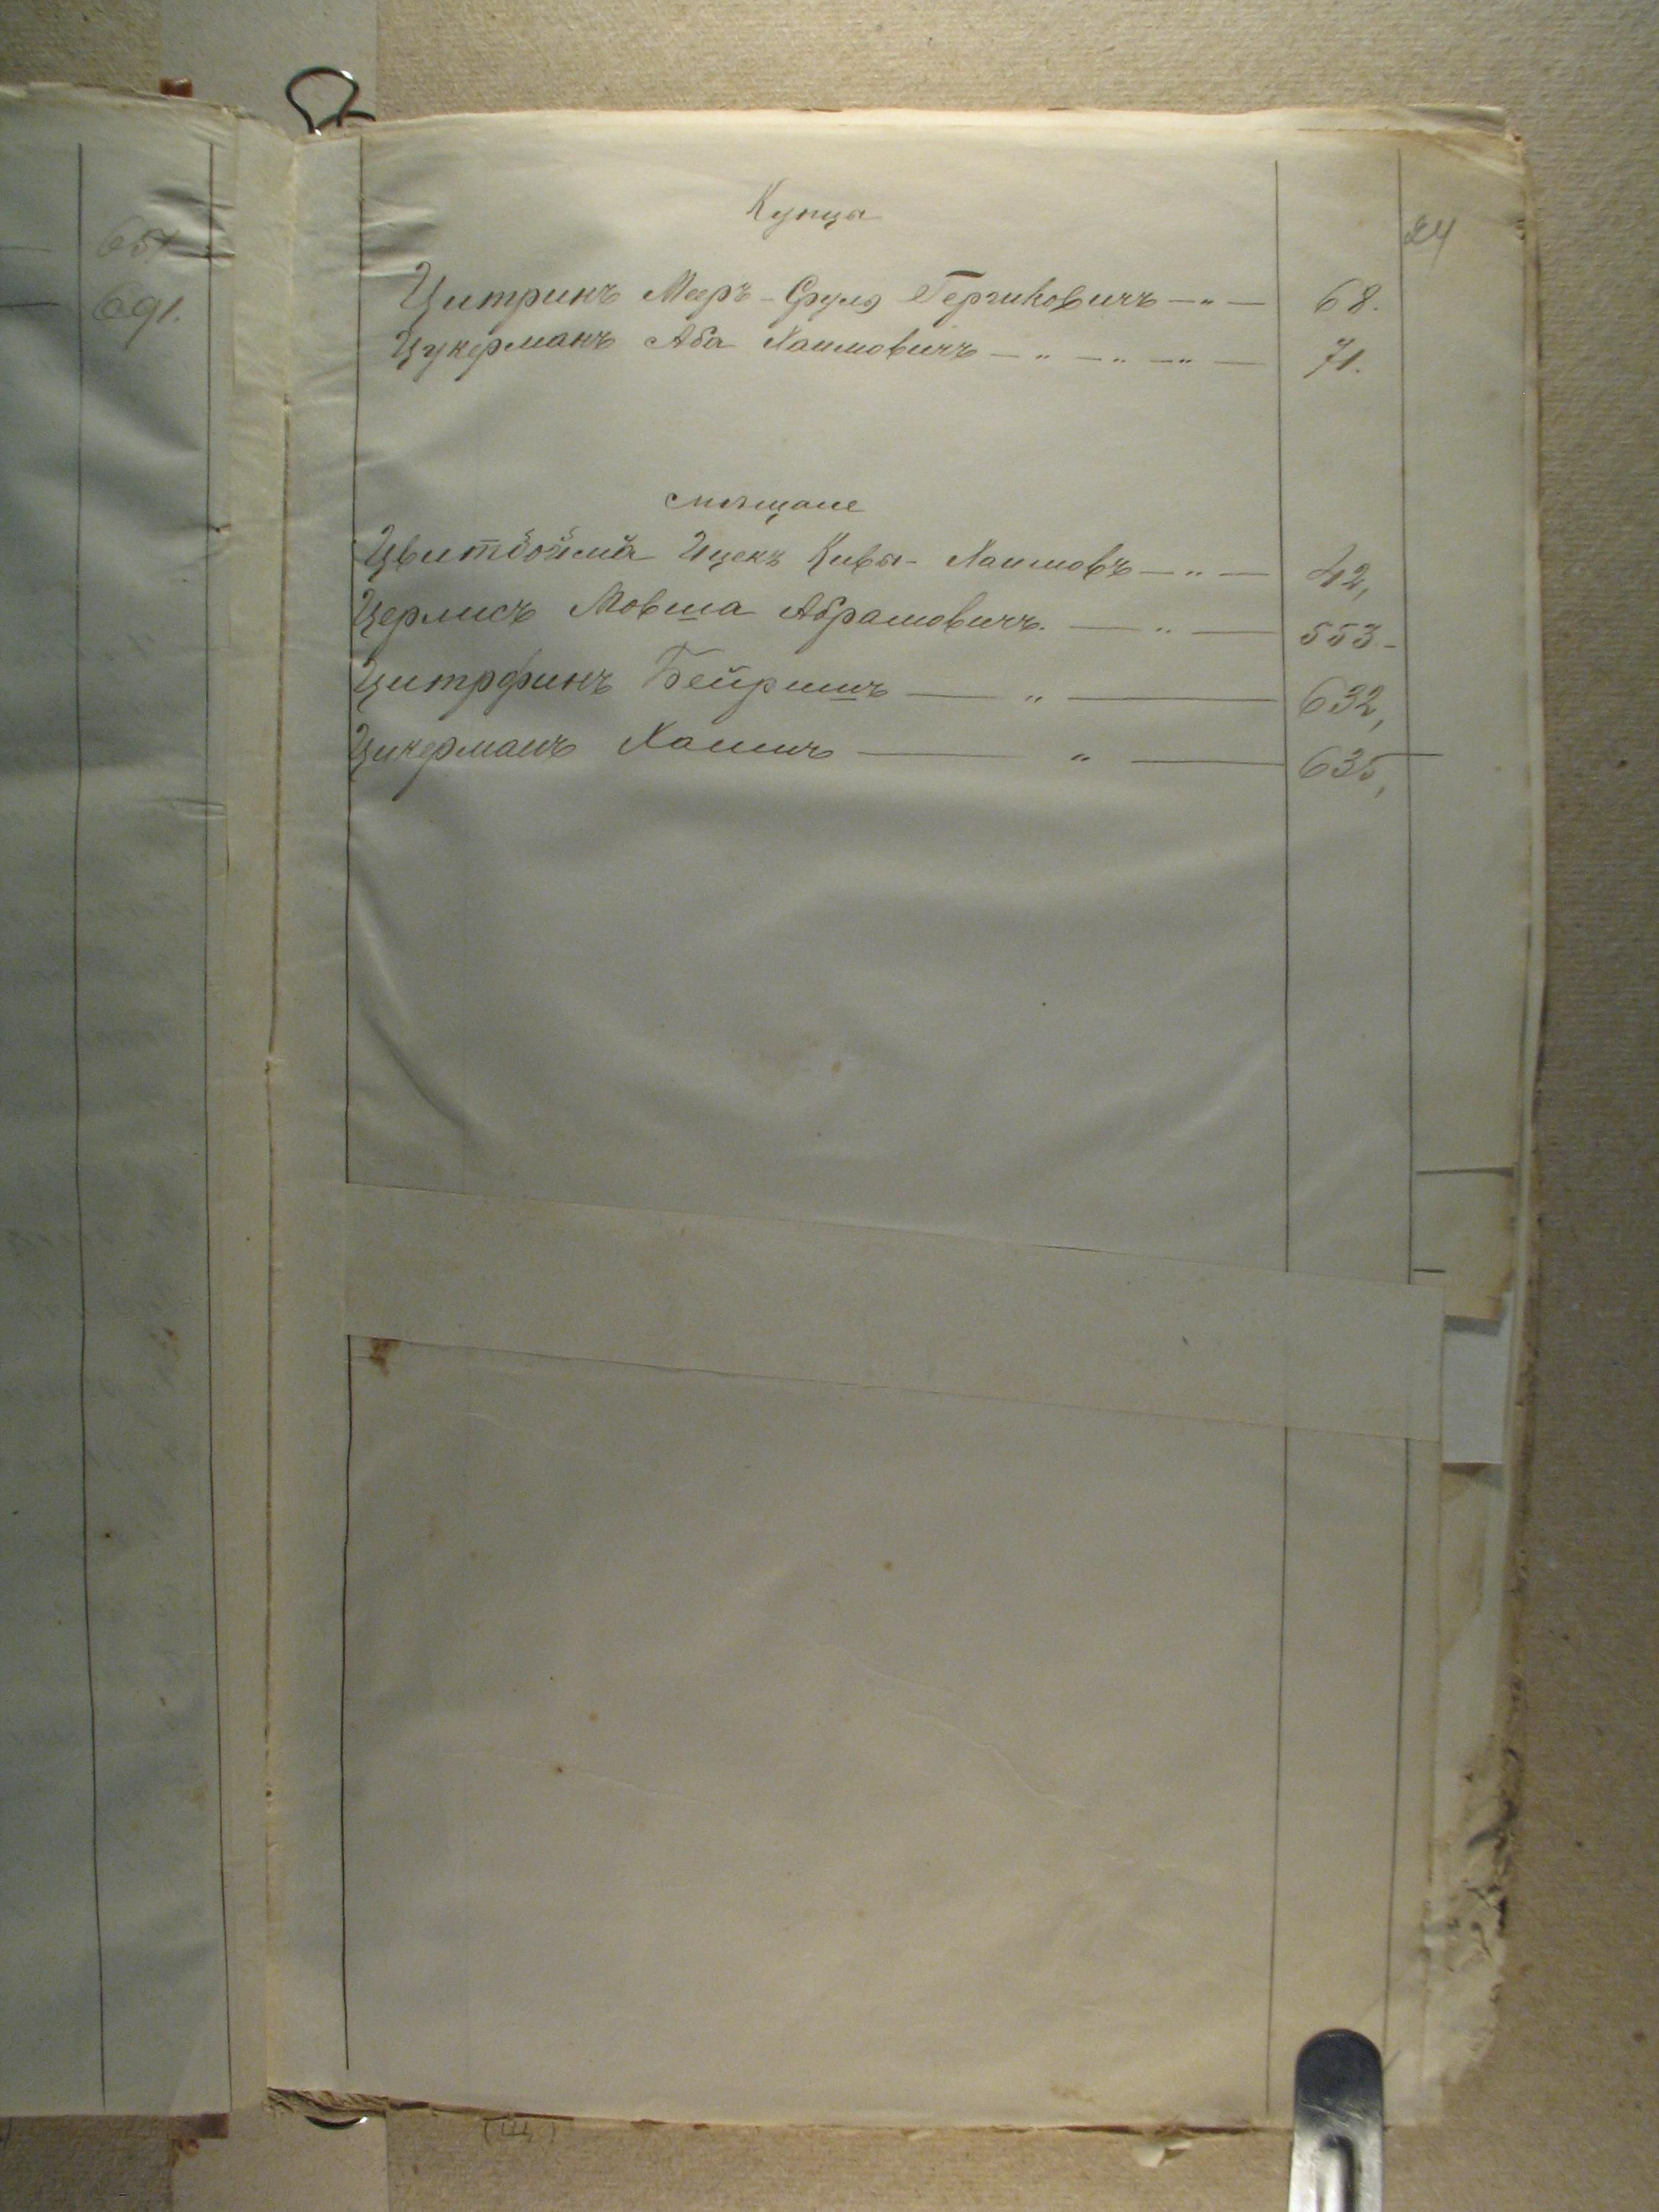 651
691.
24
Купцы
Цитринъ Меръ-Сруля Гершковичъ — " — 68.
Цукерманъ Аба Хаимовичъ — " — " — " — 71.
мѣщане
Ицекъ Кивы-Хаимовъ — " — 42,
Церлисъ Мовша Абрамовичъ. — " — 553-
Цитрфинъ Бейришъ — " — 632,
Цикерманъ Хаимъ — " — 635,